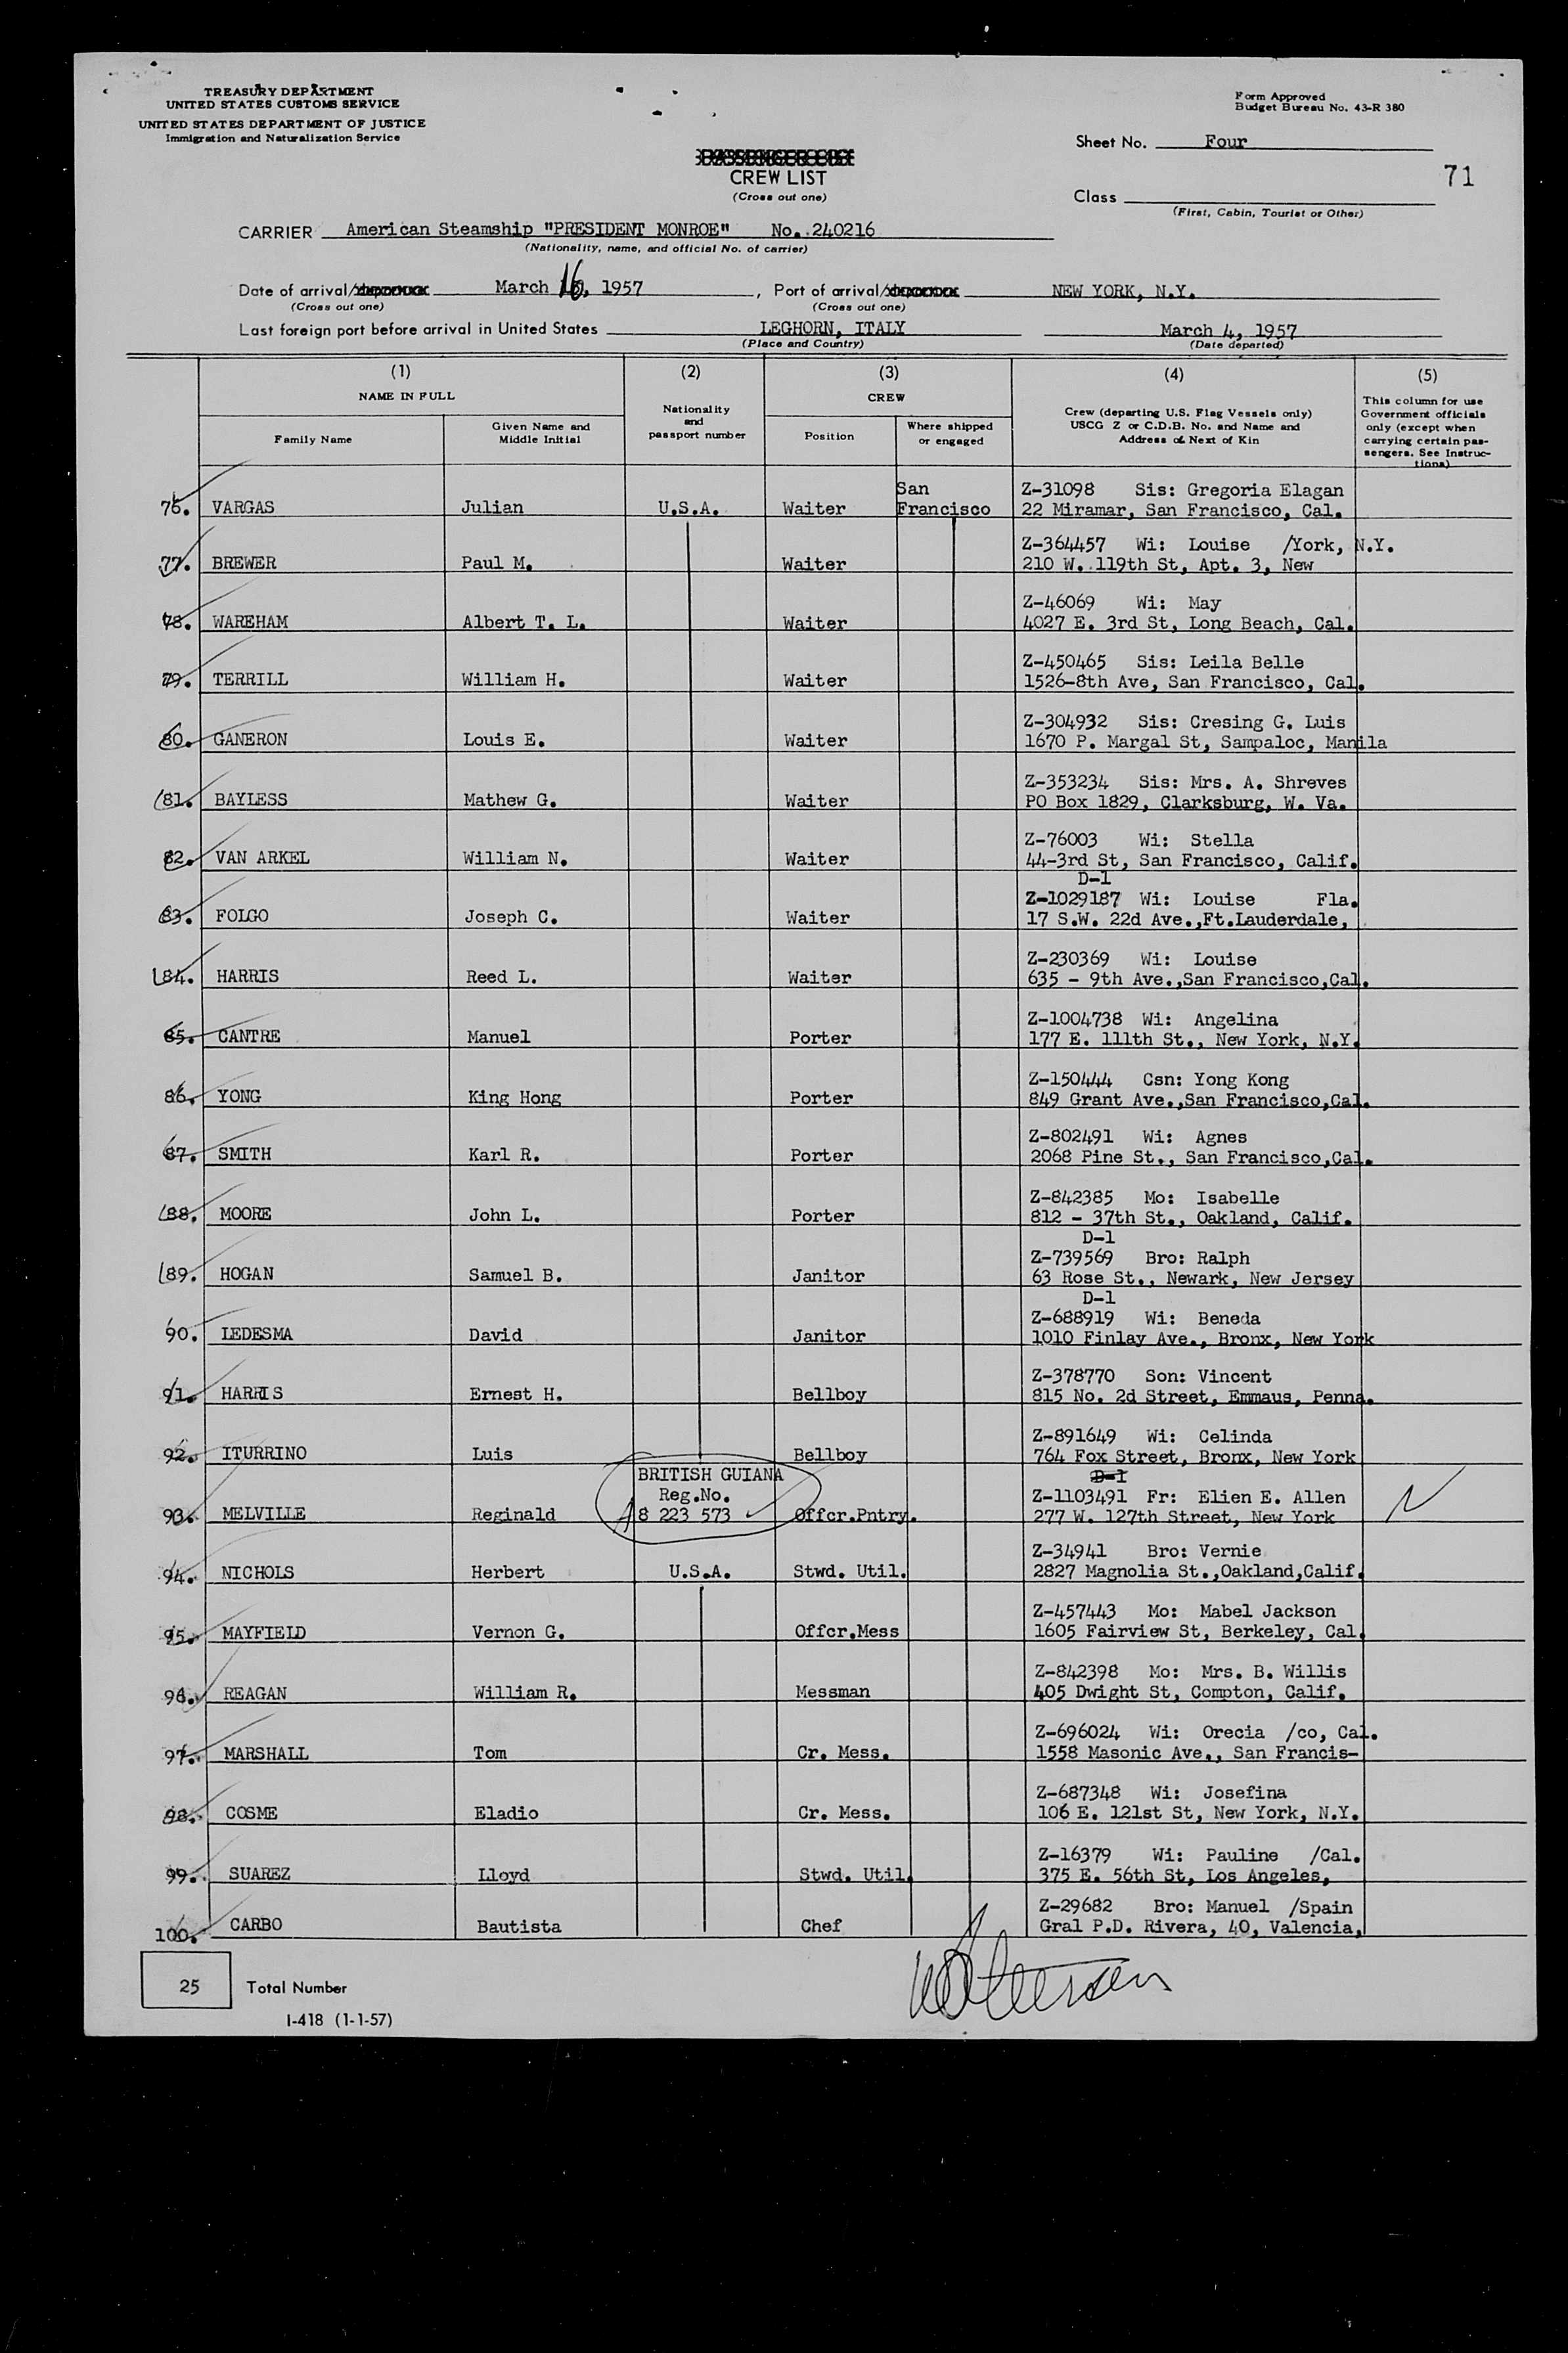 TREASURY DEPARTMENT
UNITED STATES CUSTOMS SERVICE
UNITED STATES DEPARTMENT OF JUSTICE
Immigration and Naturalization Service
Form Approved
Budget Bureau No. 43-R 380
Sheet No. Four
71
CREW LIST
(Cross out one)
Class
(First, Cabin, Tourist or Other)
CARRIER American Steamship "PRESIDENT MONROE" No. 240216
(Nationality, name, and official No. of carrier)
Date of arrival/ March 16, 1957, Port of arrival/ NEW YORK, N.Y.
(Cross out one) (Cross out one)
Last foreign port before arrival in United States LEGHORN, ITALY March 4, 1957
(Place and Country) (Date departed)
(1) (2) (3) (4) (5)
NAME IN FULL
Family Name
Given Name and
Middle Initial
Nationality
and
passport number
CREW
Position
Where shipped
or engaged
Crew (departing U.S. Flag Vessels only)
USCG Z or C.D.B. No. and Name and
Address of Next of Kin
This column for use
Government officials
only (except when
carrying certain pas-
sengers. See Instruc-
tions)
San Z-31098 Sis: Gregoria Elagan
76. VARGAS Julian U.S.A. Waiter Francisco 22 Miramar, San Francisco, Cal.
Z-364457 Wi: Louise /York, N.Y.
77. BREWER Paul M. Waiter 210 W. 119th St, Apt. 3, New
Z-46069 Wi: May
78. WAREHAM Albert T. L. Waiter 4027 E. 3rd St, Long Beach, Cal.
Z-450465 Sis: Leila Belle
79. TERRILL William H. Waiter 1526-8th Ave, San Francisco, Cal.
Z-304932 Sis: Cresing G. Luis
80. GANERON Louis E. Waiter 1670 P. Margal St, Sampaloc, Manila
Z-353234 Sis: Mrs. A. Shreves
81. BAYLESS Mathew G. Waiter PO Box 1829, Clarksburg, W. Va.
Z-76003 Wi: Stella
82. VAN ARKEL William N. Waiter 44-3rd St, San Francisco, Calif.
D-1
Z-1029187 Wi: Louise Fla.
83. FOLGO Joseph C. Waiter 17 S.W. 22d Ave.,Ft.Lauderdale,
Z-230369 Wi: Louise
84. HARRIS Reed L. Waiter 635 - 9th Ave.,San Francisco,Cal.
Z-1004738 Wi: Angelina
85. CANTRE Manuel Porter 177 E. 111th St., New York, N.Y.
Z-150444 Csn: Yong Kong
86. YONG King Hong Porter 849 Grant Ave.,San Francisco,Cal.
Z-802491 Wi: Agnes
87. SMITH Karl R. Porter 2068 Pine St., San Francisco,Cal.
Z-842385 Mo: Isabelle
88. MOORE John L. Porter 812 - 37th St., Oakland, Calif.
D-1
Z-739569 Bro: Ralph
89. HOGAN Samuel B. Janitor 63 Rose St., Newark, New Jersey
D-1
Z-688919 Wi: Beneda
90. LEDESMA David Janitor 1010 Finlay Ave., Bronx, New York
Z-378770 Son: Vincent
91. HARRIS Ernest H. Bellboy 815 No. 2d Street, Emmaus, Penna.
Z-891649 Wi: Celinda
92. ITURRINO Luis Bellboy 764 Fox Street, Bronx, New York
BRITISH GUIANA D-1
Reg.No. Z-1103491 Fr: Elien E. Allen N
93. MELVILLE Reginald A8 223 573 Offcr.Pntry. 277 W. 127th Street, New York
Z-34941 Bro: Vernie
94. NICHOLS Herbert U.S.A. Stwd. Util. 2827 Magnolia St.,Oakland,Calif.
Z-457443 Mo: Mabel Jackson
95. MAYFIELD Vernon G. Offcr.Mess 1605 Fairview St, Berkeley, Cal.
Z-842398 Mo: Mrs. B. Willis
96. REAGAN William R. Messman 405 Dwight St, Compton, Calif.
Z-696024 Wi: Orecia /co, Cal.
97. MARSHALL Tom Cr. Mess. 1558 Masonic Ave., San Francis-
Z-687348 Wi: Josefina
98. COSME Eladio Cr. Mess. 106 E. 121st St, New York, N.Y.
Z-16379 Wi: Pauline /Cal.
99. SUAREZ Lloyd Stwd. Util. 375 E. 56th St, Los Angeles,
Z-29682 Bro: Manuel /Spain
100. CARBO Bautista Chef Gral P.D. Rivera, 40, Valencia,
25 Total Number
I-418 (1-1-57)